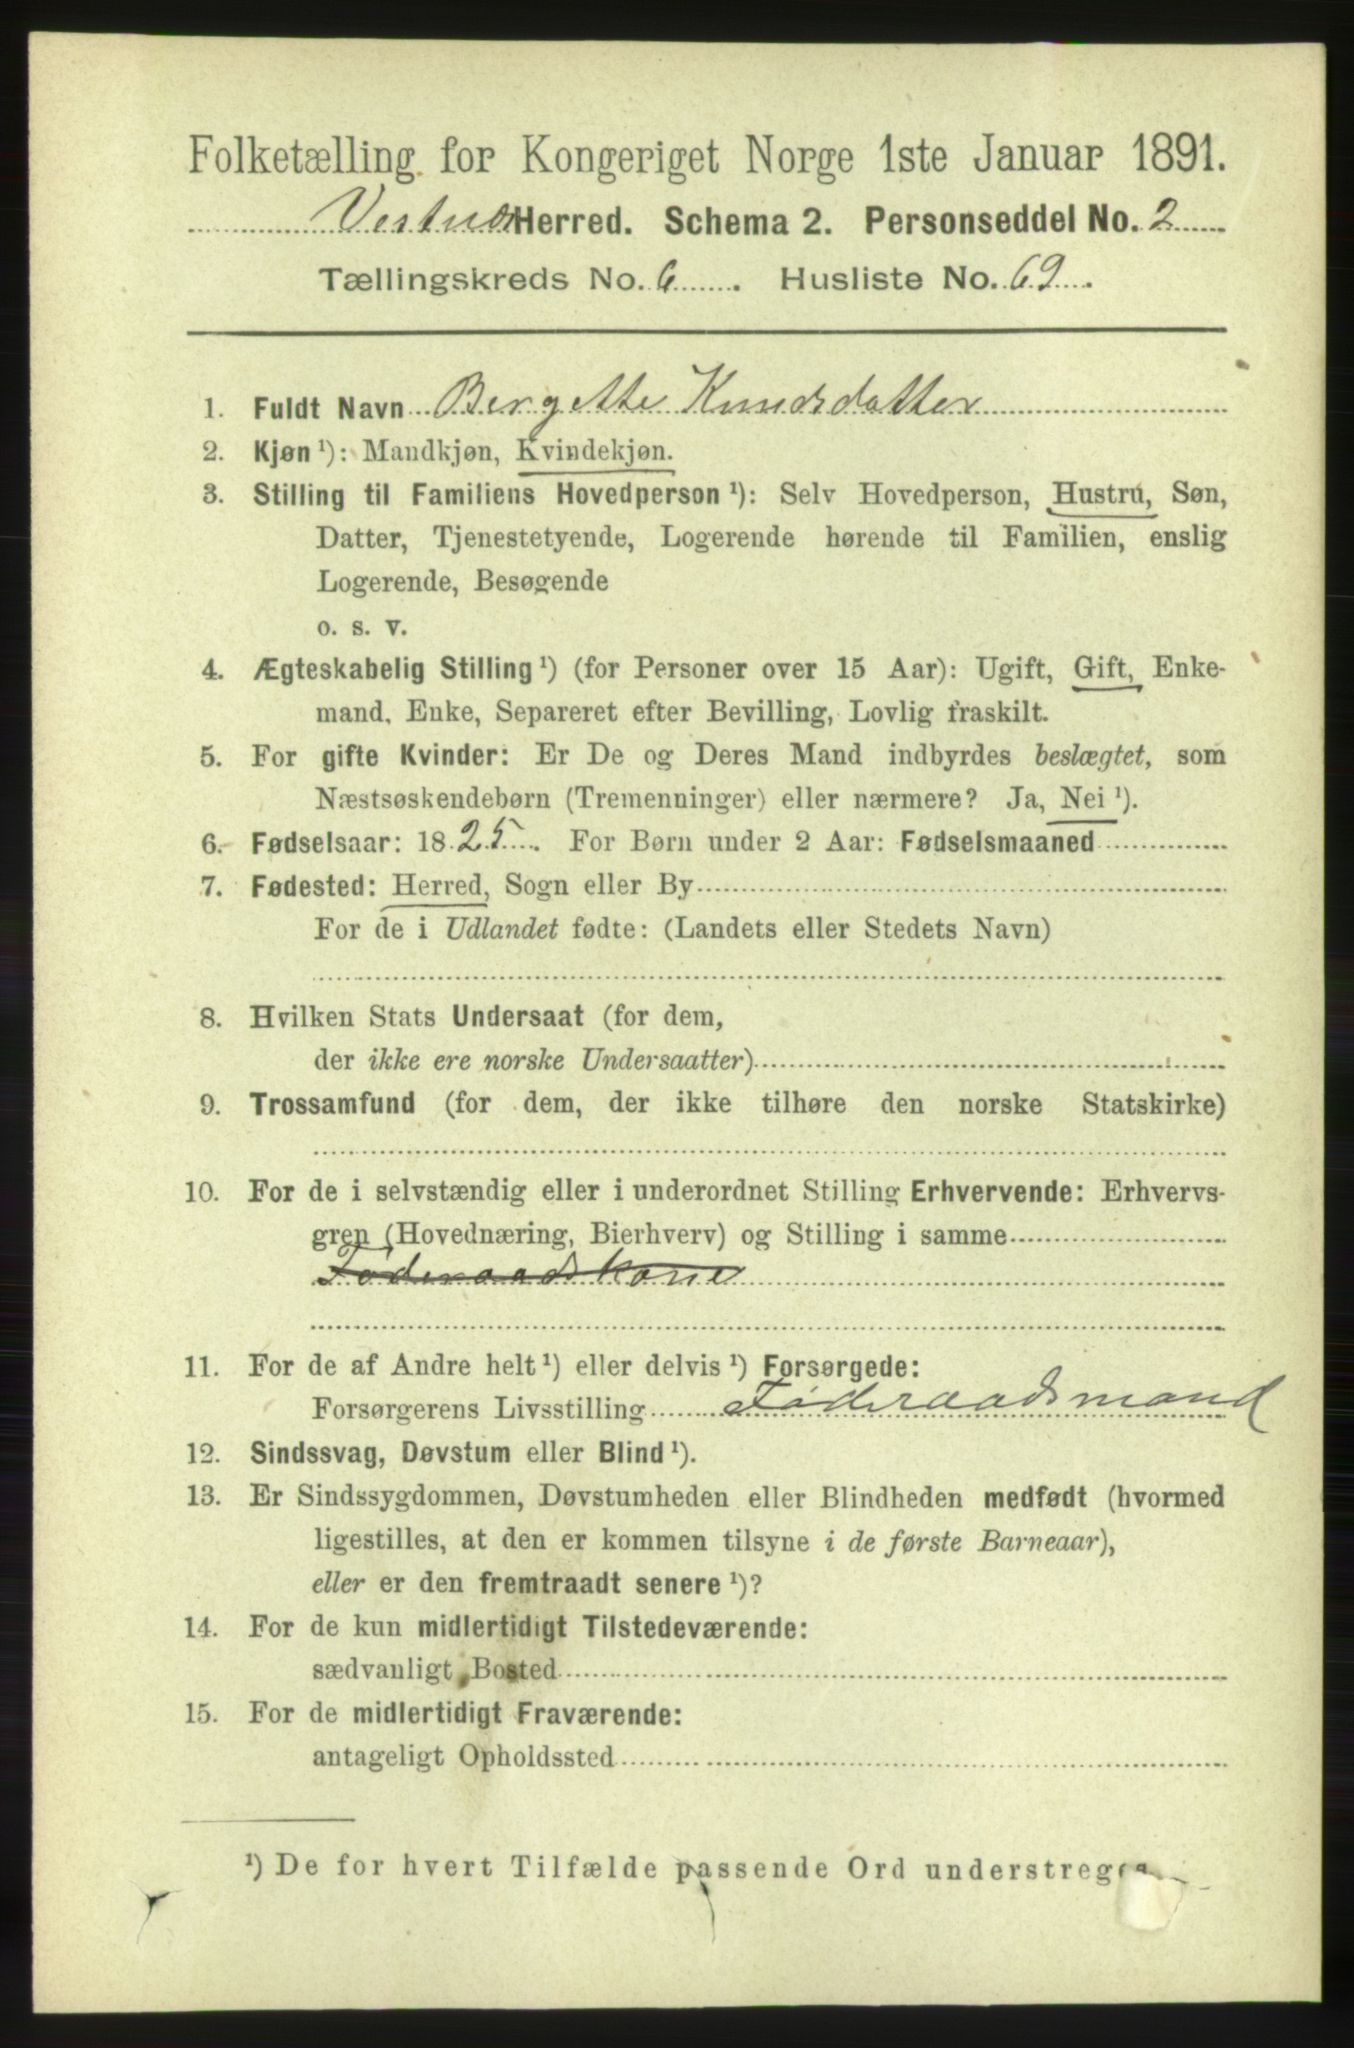 Folketælling for Kongeriget Norge 1ste Januar 1891.
Vestnes Herred. Schema 2. Personseddel No. 2
Tællingskreds No. 6. Husliste No. 69.
1. Fuldt Navn Bergette Knudsdatter
2. Kjøn ¹): Mandkjøn, Kvindekjøn.
3. Stilling til Familiens Hovedperson ¹): Selv Hovedperson, Hustru, Søn,
Datter, Tjenestetyende, Logerende hørende til Familien, enslig
Logerende, Besøgende
o. s. v.
4. Ægteskabelig Stilling ¹) (for Personer over 15 Aar): Ugift, Gift, Enke-
mand, Enke, Separeret efter Bevilling, Lovlig fraskilt.
5. For gifte Kvinder: Er De og Deres Mand indbyrdes beslægtet, som
Næstsøskendebørn (Tremenninger) eller nærmere? Ja, Nei ¹).
6. Fødselsaar: 1825. For Børn under 2 Aar: Fødselsmaaned
7. Fødested: Herred, Sogn eller By
For de i Udlandet fødte: (Landets eller Stedets Navn)
8. Hvilken Stats Undersaat (for dem,
der ikke ere norske Undersaatter)
9. Trossamfund (for dem, der ikke tilhøre den norske Statskirke)
10. For de i selvstændig eller i underordnet Stilling Erhvervende: Erhvervs-
gren (Hovednæring, Bierhverv) og Stilling i samme
Føderaadskone
11. For de af Andre helt ¹) eller delvis ¹) Forsørgede:
Forsørgerens Livsstilling Føderaadsmand
12. Sindssvag, Døvstum eller Blind ¹).
13. Er Sindssygdommen, Døvstumheden eller Blindheden medfødt (hvormed
ligestilles, at den er kommen tilsyne i de første Barneaar),
eller er den fremtraadt senere ¹)?
14. For de kun midlertidigt Tilstedeværende:
sædvanligt Bosted
15. For de midlertidigt Fraværende:
antageligt Opholdssted
¹) De for hvert Tilfælde passende Ord understreges